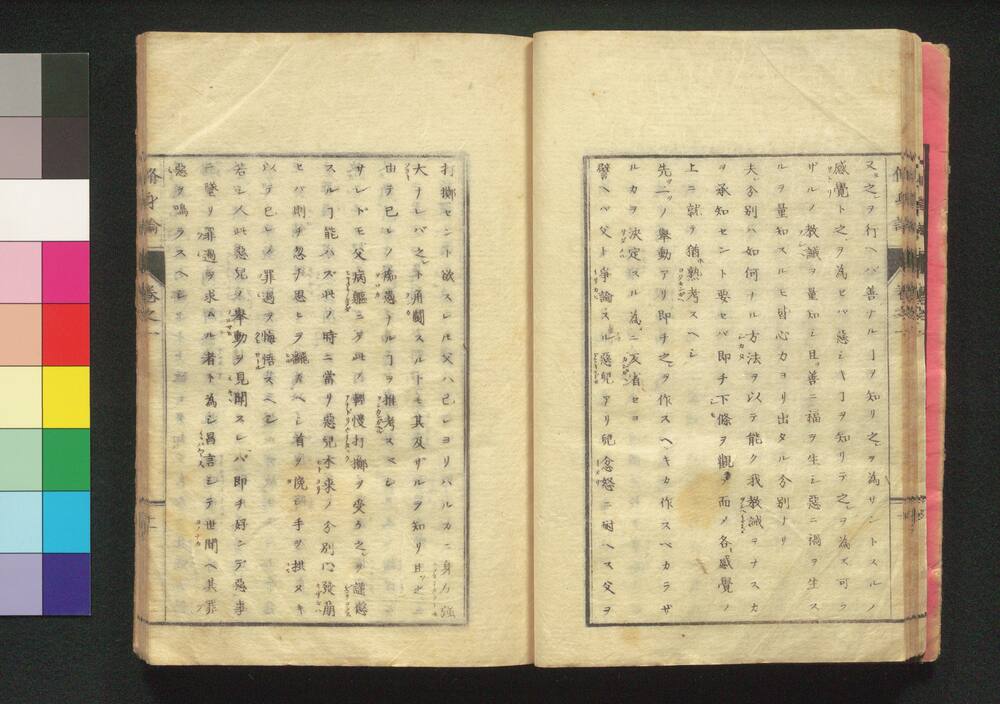 又之ヲ行ヘバ善ナルヿヲ知リ之ヲ為サントスルノ
感覺ト之ヲ為セバ惡シキヿヲ知リテ之ヲ為ス可ラ
ザルノ教誡ヲ量知シ且善ニ福ヲ生シ惡ニ禍ヲ生ス
ルヲ量知スルモ自心カヨリ出タル分別ナリ
夫分別ハ如何ナル方法ヲ以テ能ク我教誡ヲナスカ
ヲ承知セント要セバ即チ下條ヲ觀ヨ而メ各感覺ノ
上ニ就テ猶熟考スヘシ
先一ツノ舉動アリ即チ之ヲ作スヘキカ作スベカラザ
ルカヲ決定スル為ニ反省セヨ
譬ヘバ父ト爭論スル惡兒アリ兒忿怒ニ耐ヘス父ヲ
打擲セント欲スレ𪜈父ハ己レヨリハルカニ身力強
大ナレバ之ト角鬪スルトモ其及ザルヲ知リ且之ニ
由テ己レノ痴愚ナルヿヲ推考スベシ
サレドモ父病軀ニシテ此ノ輕慢打擲ヲ受ク之ヲ謹懲
スルヿ能ハズ此ノ時ニ當リ惡兒本來ノ分別心發崩
セバ則チ忽チ思ヒヲ飜スベシ首ヲ俛シ手ヲ拱ヌキ
以テ已レノ罪過ヲ悔悟スベシ
若シ人此惡兒ノ舉動ヲ見聞スレバ即チ好ンデ惡事
ニ墜リ罪過ヲ求ムル者ト為シ昌言シテ世間ヘ其罪
惡ヲ鳴ラスヘシ
脩身論 卷之一